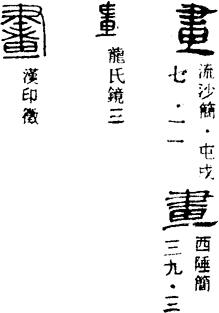 畫
流沙簡·屯戍
七·一一
畫
西陲簡
三九·三
畫
龍氏鏡三
畫
漢印徵